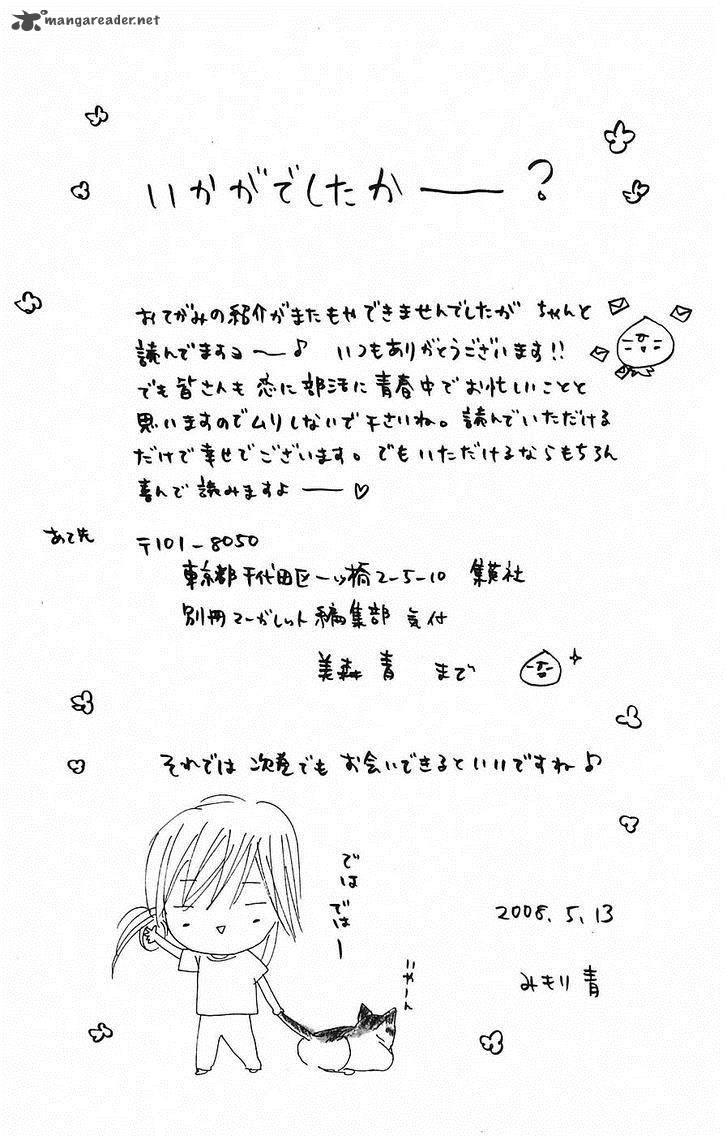 mangareader.net
いかがでしたかーー?
おてがみの紹介がまたもやできませんでしたが ちゃんと
読んでますョ〜♪ いつもありがとうございます!!
でも皆さんも恋に部活に青春中でお忙しいことと
思いますのでムリしないで下さいね。読んでいただける
だけで幸せでございます。でもいただけるならもちろん
喜んで読みますよーー♡
あて先
〒101-8050
東京都千代田区一ッ橋2-5-10 集英社
別冊マーガレット編集部 気付
美森 青 まで
それでは次巻でもお会いできるといいですね♪
ではではー
いやーん
2008.5.13
みもり 青